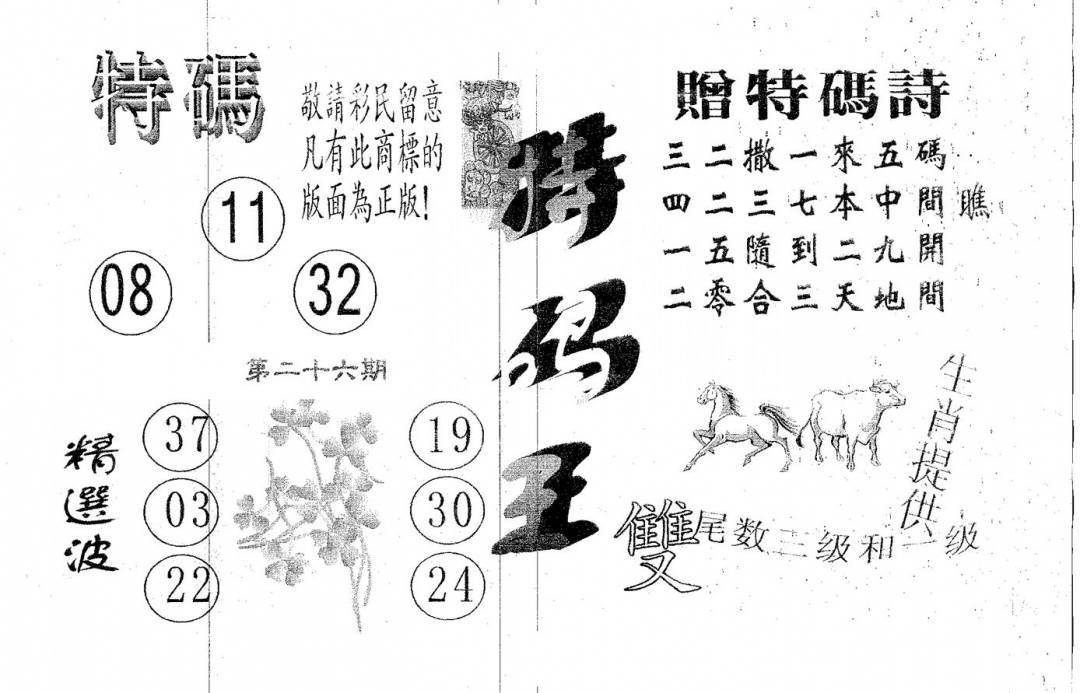 特碼
敬請彩民留意
凡有此商標的
版面為正版!
11
08
32
第二十六期
精選波
37
03
22
19
30
24
特码王
贈特碼詩
三二撒一來五碼
四二三七本中間瞧
一五隨到二九開
二零合三天地間
生肖提供
雙
尾数二级和一级